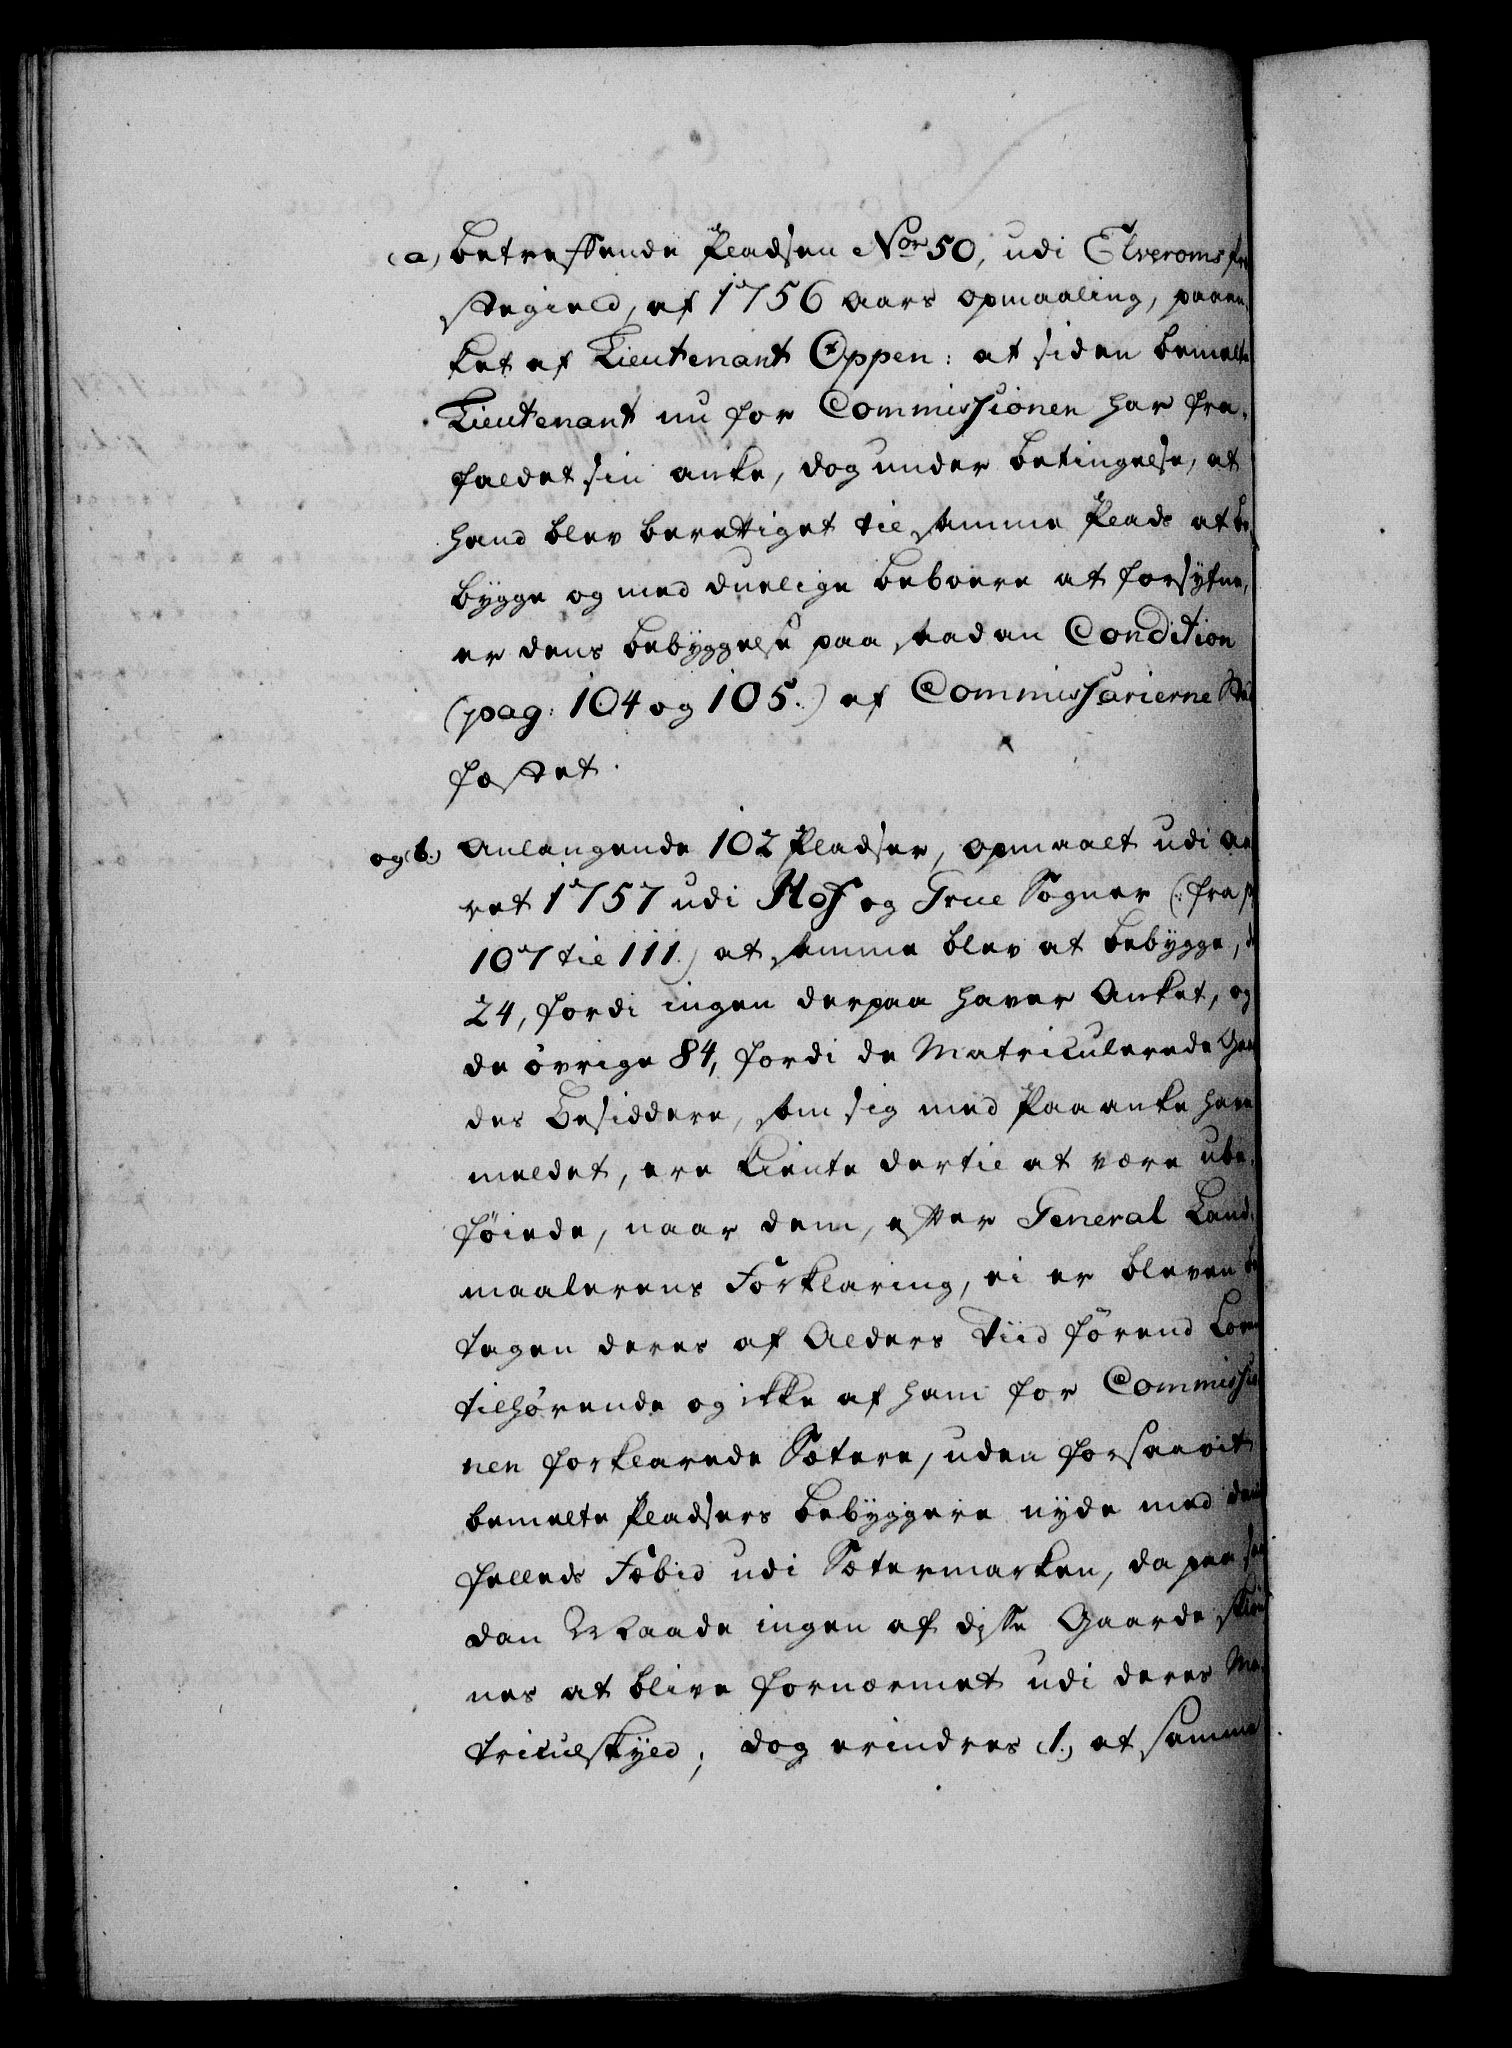 (a) betreffende Pladsen Nor 50, udi Elveroms Præ-
stegield, af 1756 Aars Opmaaling, paaan-
ket af Lieutenant Oppen: at siden bemelte
Lieutenant nu for Commissionen har fra-
faldet sin anke, dog under betingelse, at
hand blev berettiget til samme Plads at be-
bygge og med duelige beboere at forsyne,
er dens bebyggelse paa saadan Condition
(pag: 104 og 105.) af Commissarierne stad
fæstet.
og (b.) Anlangende 102 Pladser, opmaalt udi Aa
ret 1757 udi Hof og Grue Sogner (: fra p.
107 til 111.) at samme blev at bebygge, de
24, fordi ingen derpaa haver Anket, og
de øvrige 84, fordi de Matriculerede Gaar
des Besiddere, som sig med Paaanke have
meldet, ere kiente dertil at være ube-
føiede, naar dem, efter General Land-
maalerens Forklaring, ei er bleven be
tagen deres af Alders Tiid førend Loven
tilhørende og ikke af ham for Commissio
nen forklarede Sætere, uden forsaavit
bemelte Pladsers bebyggere nyde med dem
fælleds Fæbid udi Sætermarken, da paa saa
dan Maade ingen af disse Gaarde skiøn
nes at blive fornærmet udi deres Ma-
triculskyld; dog erindres (1.) at samme